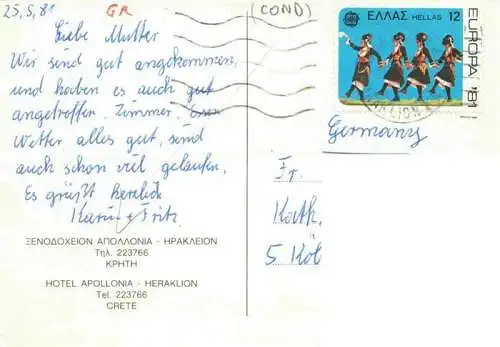 25.5.81
GR
(COND)
Liebe Mutter
Wir sind gut angekommen,
und haben es auch gut
angetroffen. Zimmer,
Wetter alles gut, sind
auch schon viel gelaufen.
Es grüßt herzlich
Karin + Fritz
ΞΕΝΟΔΟΧΕΙΟΝ ΑΠΟΛΛΟΝΙΑ - ΗΡΑΚΛΕΙΟΝ
Τηλ. 223766
ΚΡΗΤΗ
HOTEL APOLLONIA - HERAKLION
Tel. 223766
CRETE
ΕΛΛΑΣ HELLAS 12
EUROPA '81
Germany
Fr.
Kath.
5 Köl